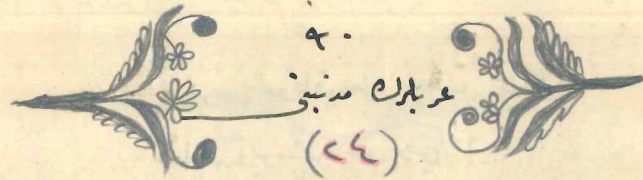 ٩٠
عربلرك مدنيتى
(٢٤)